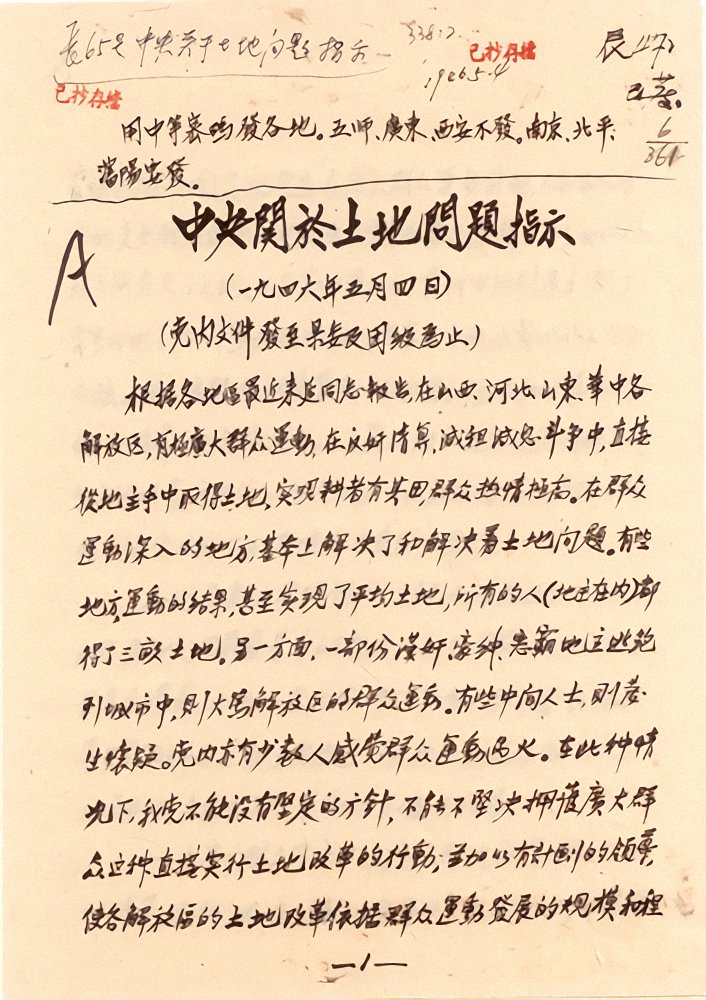 長65号中央关于土地问题指示
338:2
已抄存檔
1946.5.4
已抄存檔
6
361
用中等密碼發各地。五師、廣東、西安不發。南京、北平、
瀋陽要發。
A
中央關於土地問題指示
(一九四六年五月四日)
(党内文件發至県委及团级為止)
根据各地區最近来延同志報告,在山西、河北、山東、華中各
解放区,有極廣大群众運動,在反奸清算,減租減息斗争中,直接
從地主手中取得土地,实現耕者有其田,群众热情極高。在群众
運動深入的地方,基本上解决了和解决着土地问題。有些
地方運動的结果,甚至实现了平均土地,所有的人(地主在内)都
得了三畝土地。另一方面,一部份漢奸、豪绅、惡霸、地主逃跑
到城市中,則大罵解放区的群众運動。有些中间人士,則發
生懷疑。党内亦有少数人感觉群众運動过火。在此种情
况下,我党不能没有坚定的方針,不能不坚决拥護廣大群
众这种直接实行土地改革的行動,並加以有計劃的领導,
使各解放區的土地改革依据群众運動發展的规模和程
—1—